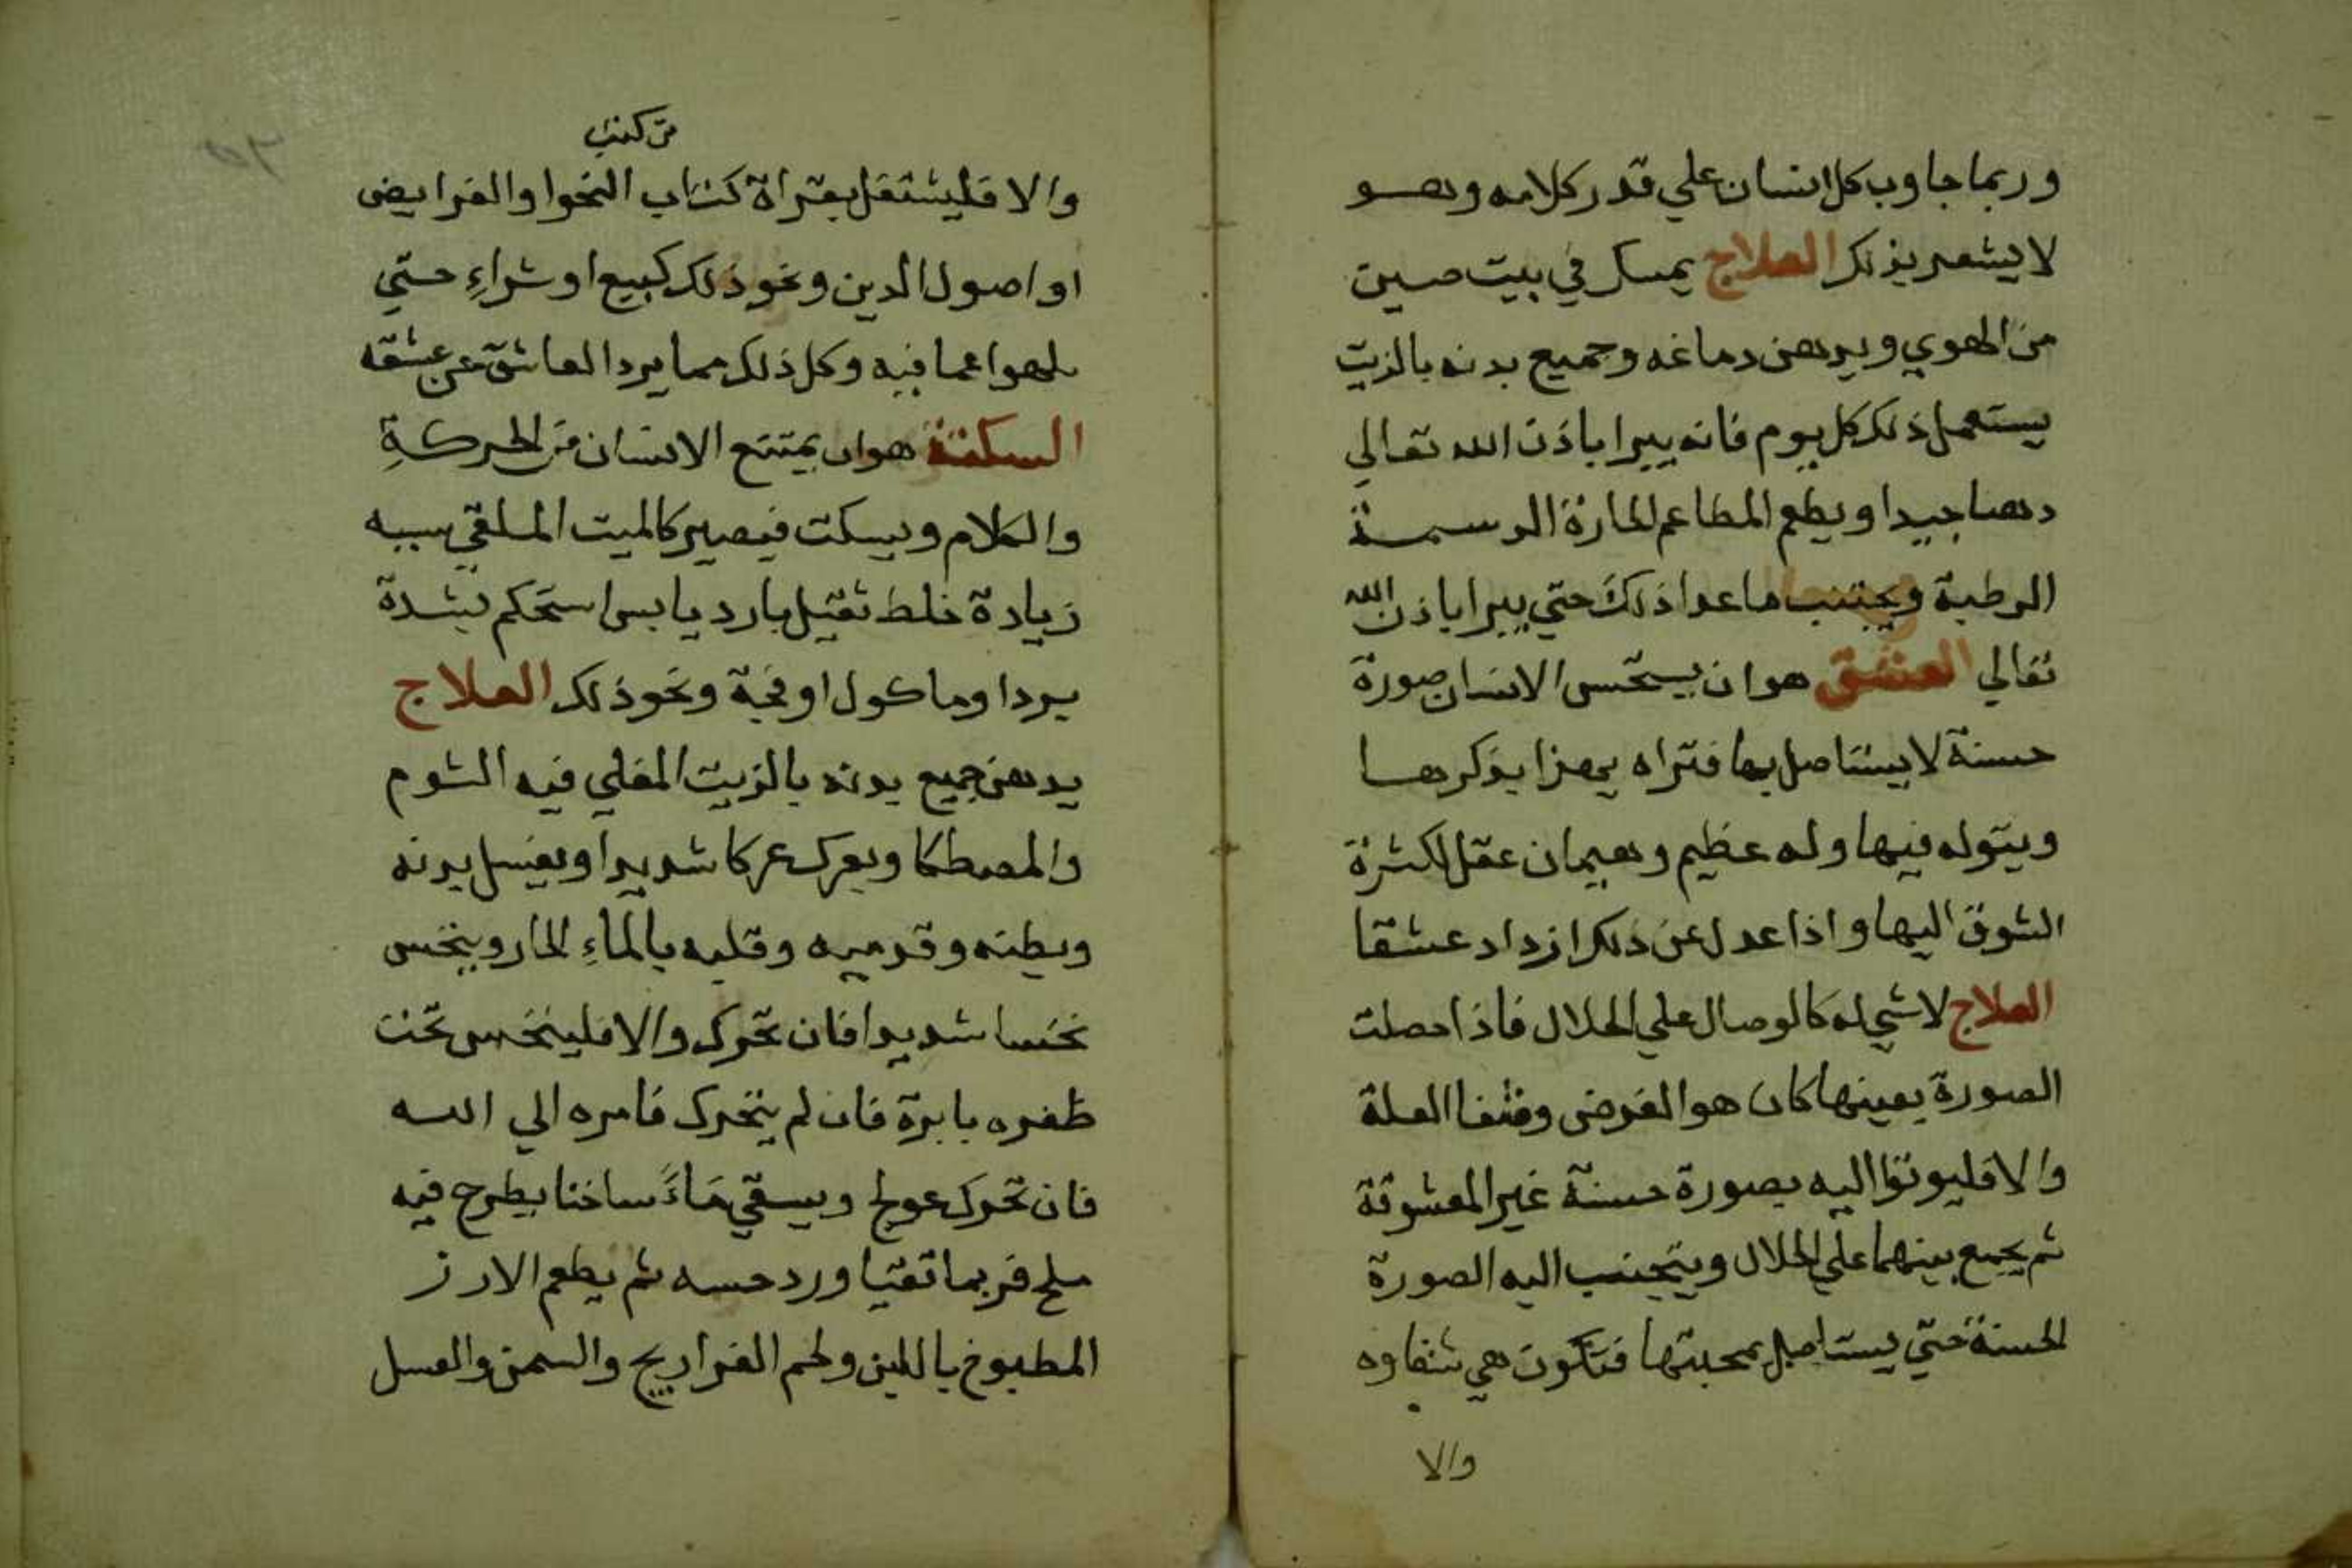 وربما جاوب كل انسان علي قدر كلامه وهو
لا يشعر بذلك العلاج يمسك في بيت صين
من الهوي ويدهن دماغه وجميع بدنه بالزيت
يستعمل ذلك كل يوم فانه يبرا باذن الله تعالي
دهنا جيدا ويطعم المطاعم الحارة الدسمة
الرطبة ويجتنب ما عدا ذلك حتي يبرا باذن الله
تعالي العشق هو ان يستحسن الانسان صورة
حسنة لا يستاصل بها فتراه يهزا بذكرها
ويتوله فيها وله عظيم وهيمان عقل لكثرة
الشوق اليها واذا عدل عن ذلك ازداد عشقا
العلاج لا شي له كالوصال علي الحلال فاذا حصلت
الصورة بعينها كان هو الغرض وشفا العلة
والا فليوتوا اليه بصورة حسنة غير المعشوقة
ثم يجمع بينهما علي الحلال ويتجنب اليه الصورة
الحسنة حتي يستاصل بمحبتها فتكون هي شفاوه
والا
من كتب
والا فليشتغل بقراة كتاب النحوا والفرايض
او اصول الدين ونحو ذلك كبيع او شراءِ حتي
يلهوا عما فيه وكل ذلك مما يرد العاشق عن عشقه
السكتة هو ان يمتنع الانسان من الحركةِ
والكلام ويسكت فيصير كالميت الملقي سببه
زيادة خلط ثقيل بارد يابس استحكم بشدة
بردا وماكول او فجة ونحو ذلك العلاج
يدهن جميع بدنه بالزيت المغلي فيه الثوم
والمصطكا ويعرك عركا شديدا ويغسل بدنه
وبطنه وقدميه وقلبه بالماءِ الحار وينخس
نخسا شديدا فان تحرك والا فلينخس تحت
ظفره بابرة فان لم يتحرك فامره الي الله
فان تحرك عولج ويسقي ماءً ساخنا يطرح فيه
ملح فربما تقيا ورد حسه ثم يطعم الارز
المطبوخ باللبن ولحم الفراريج والسمن والعسل